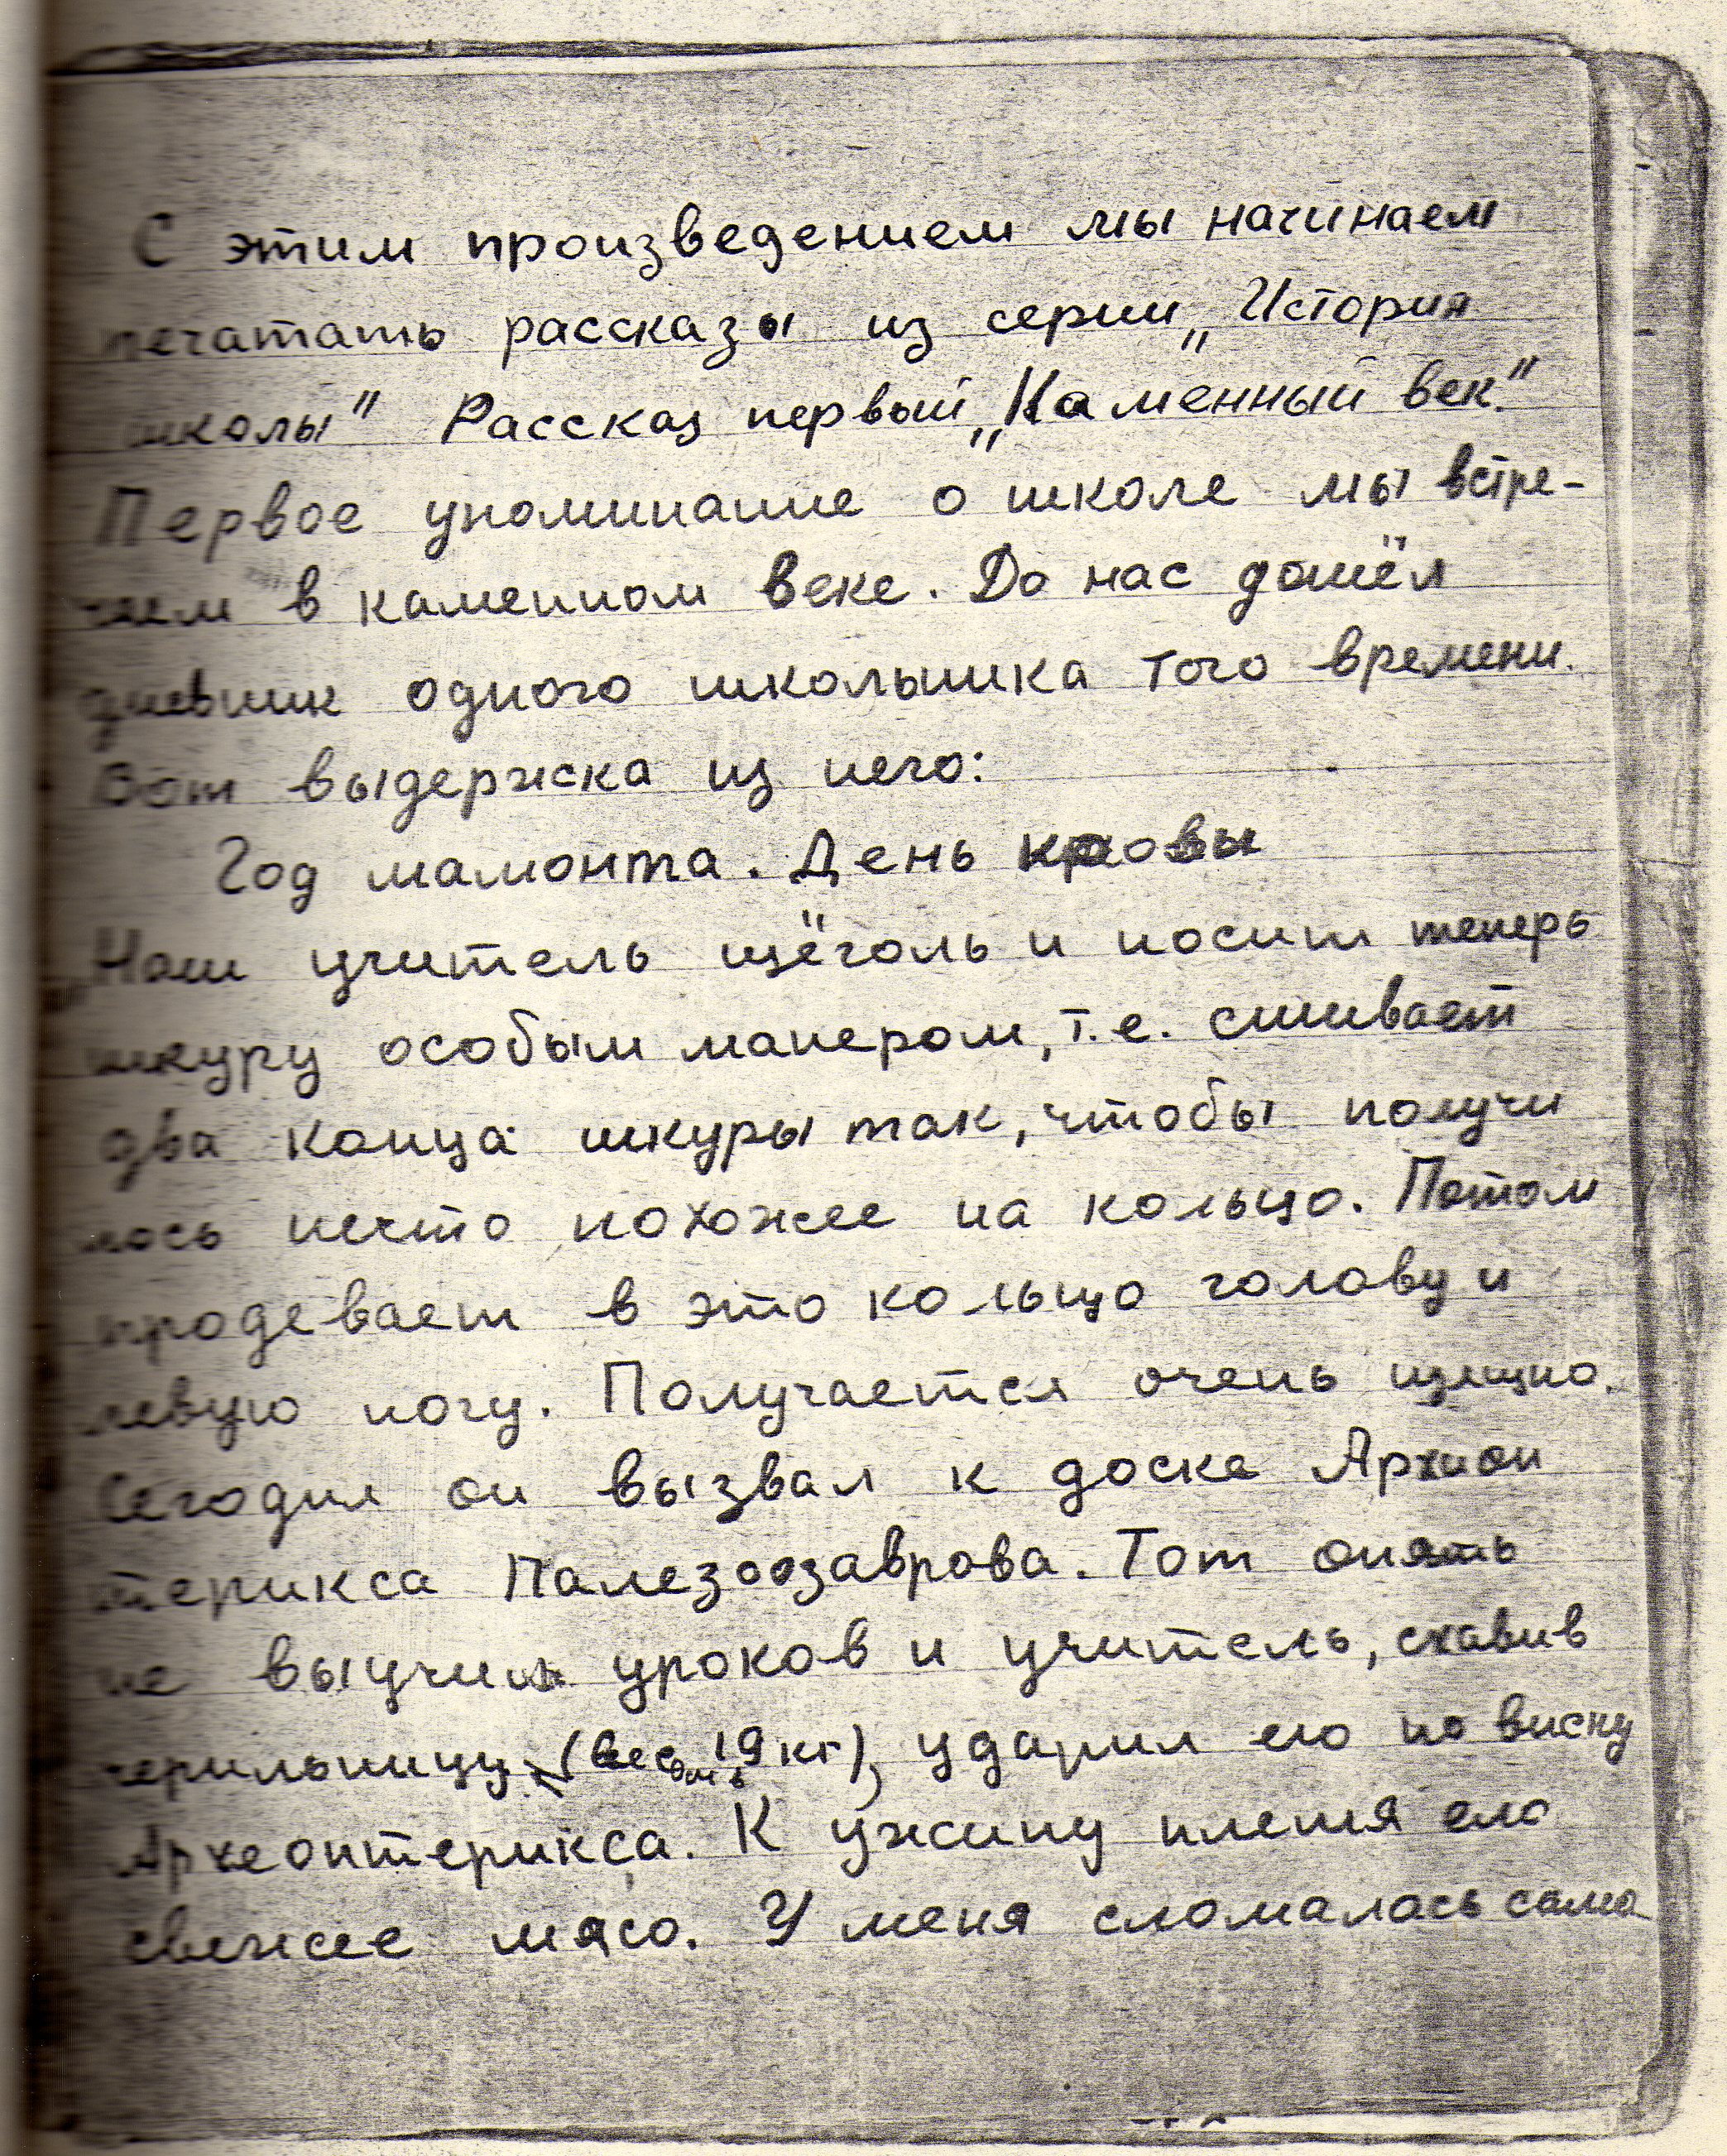 С этим произведением мы начинаем
печатать рассказы из серии „История
школы" Рассказ первый „Каменный век."
Первое упоминание о школе мы встре-
чаем в каменном веке. До нас дошёл
дневник одного школьника того времени.
Вот выдержка из него:
Год мамонта. День коровы
„Наш учитель щёголь и носит теперь
шкуру особым манером, т.е. сшивает
два конца шкуры так, чтобы получи
лось нечто похожее на кольцо. Потом
продевает в это кольцо голову и
левую ногу. Получается очень изящно.
Сегодня он вызвал к доске Архиоп
терикса Палезоозаврова. Тот опять
не выучил уроков и учитель, схватив
чернильницу (вес 19 кг), ударил ею по виску
Археоптерикса. К ужину племя ело
свежее мясо. У меня сломалась сама